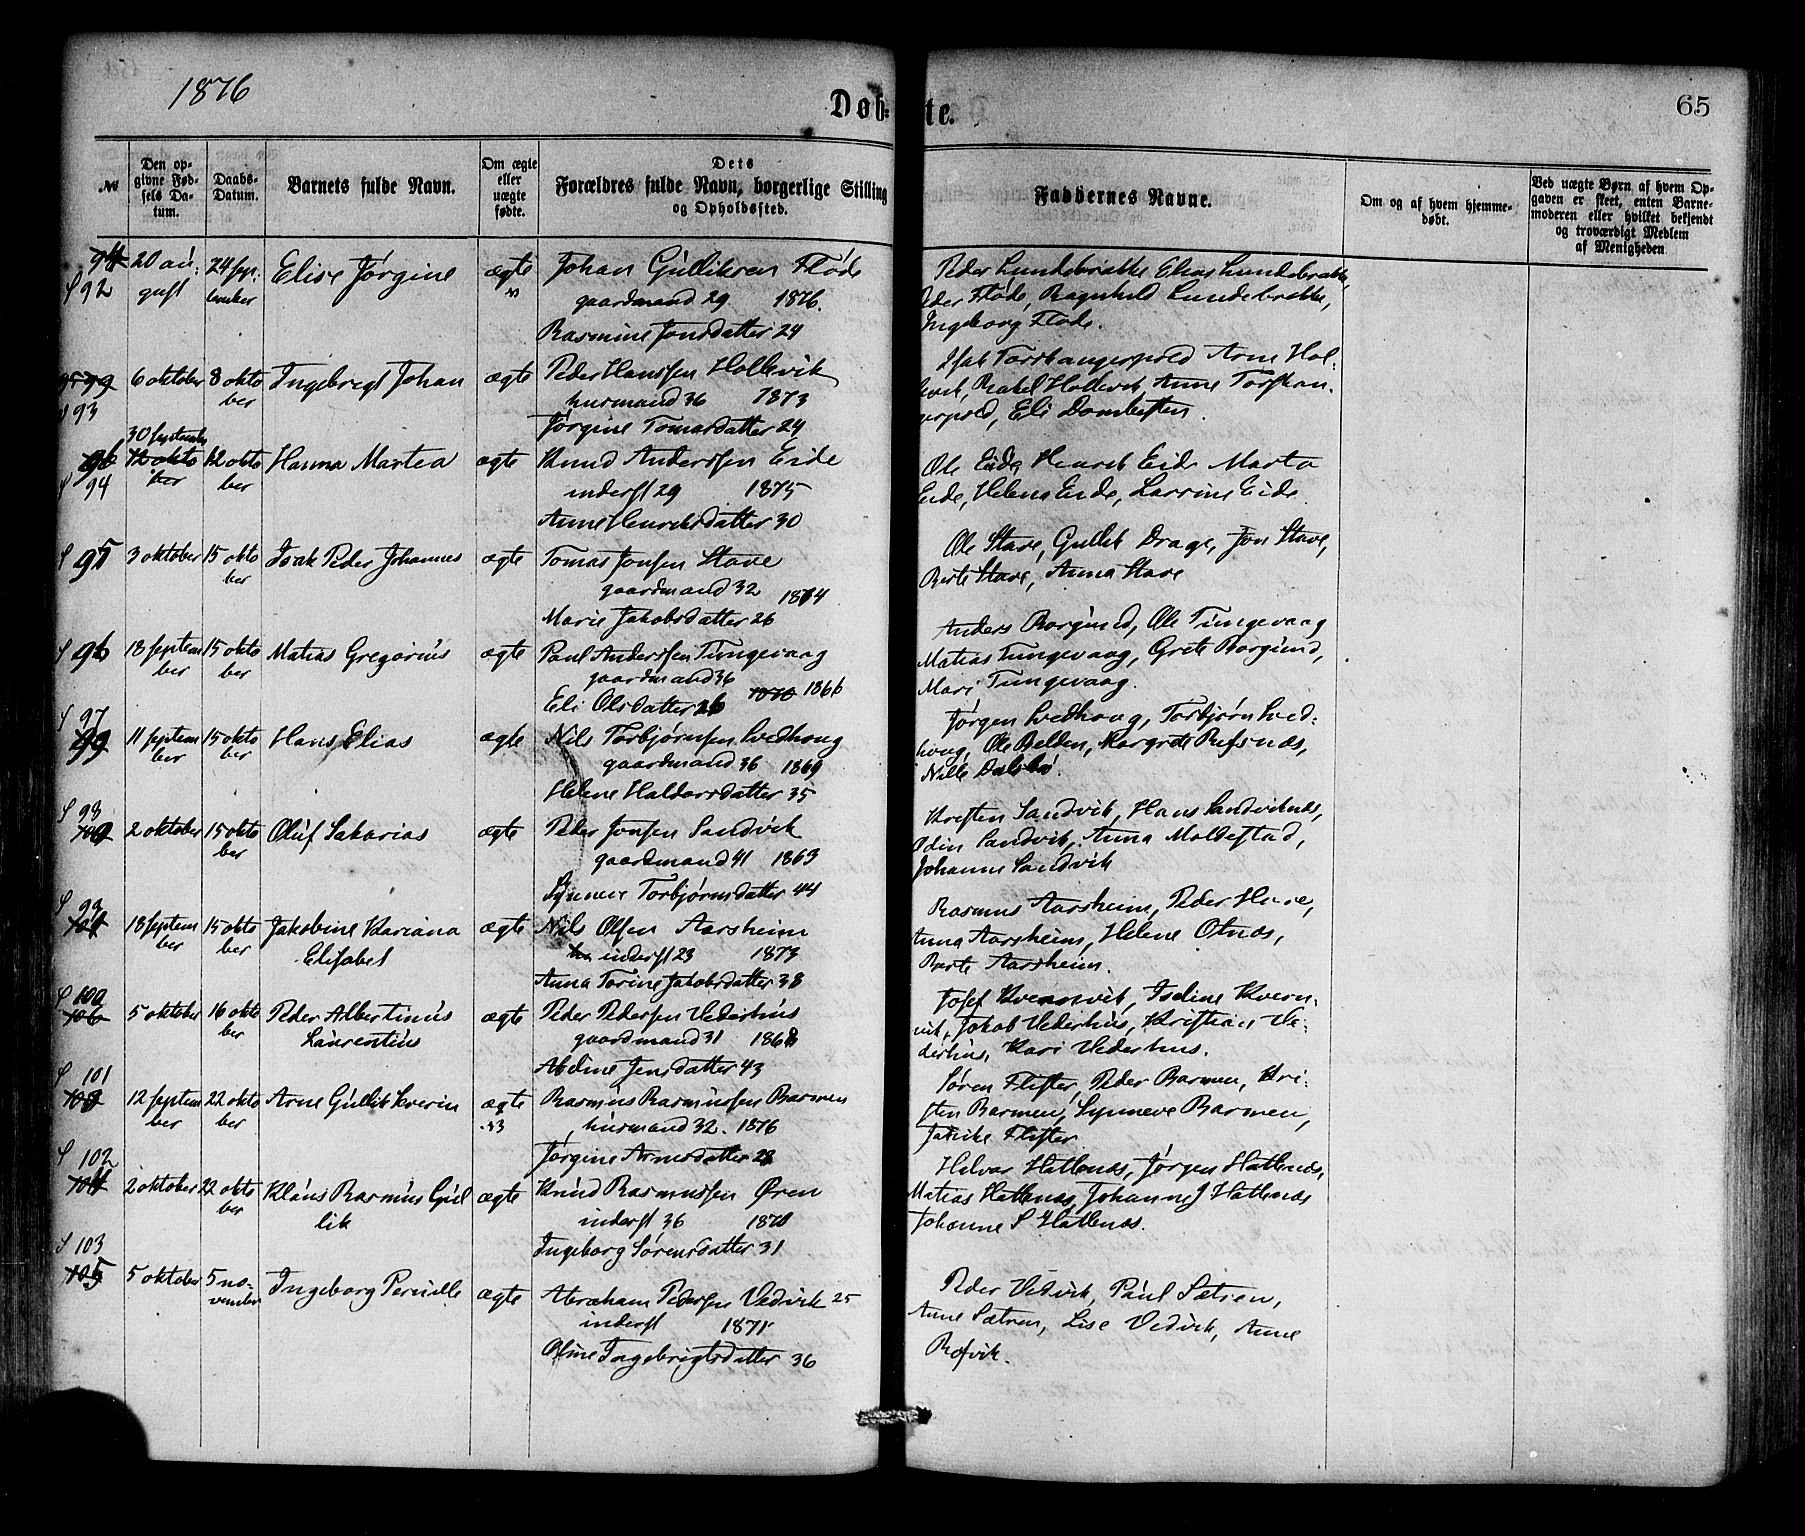 1876
Døb=
te.
65
№
Den op-
givne Fød-
sels Da-
tum.
Daabs-
Datum.
Barnets fulde Navn.
Om ægte
eller
uægte
fødte.
Dets
Forældres fulde Navn, borgerlige Stilling
og Opholdssted.
Faddernes Navne.
Om og af hvem hjemme-
døbt.
Ved uægte Børn af hvem Op-
gaven er skeet, enten Barne-
moderen eller hvilket bekjendt
og troværdigt Medlem
af Menigheden
94
S 92
20 au-
gust
24 sep-
tember
Elise Jørgine
ægte
Johan Gulliksen Fløde
gaardmand 29 1876.
Rasmine Jonsdatter 24
Peder Lundebrække Elias Lundebrække,
Peder Fløde, Ragnhild Lundebrække,
Ingeborg Fløde.
93
6 oktober
8 okto
ber
Ingebrigt Johan
ægte
Peder Hanssen Hollevik
husmand 36 1873
Jørgine Tomasdatter 24
Isak Torskangerpold Arne Hol-
levik, Rakel Hollevik Anne Torskan-
gerpold, Eli Dombesten.
96
S 94
30 september
12 okto
ber
12 okto
ber
Hanna Martea
ægte
Knud Anderssen Eide
inderst 29 1875
Anne Henriksdatter 30
Ole Eide, Henrik Eide Marta
Eide, Helena Eide, Lassine Eide
S 95
3 oktober
15 okto
ber
Isak Peder Johannes
ægte
Tomas Jonsen Stave
gaardmand 32 1874
Marie Jakobsdatter 26
Ole Stave, Gullik Drage, Jon Stave,
Berte Stave, Anna Stave
S 96
18 septem
ber
15 okto
ber
Matias Gregorius
ægte
Paul Anderssen Tungevaag
gaardmand 36
1870 1866
Eli Olsdatter 26
Anders Borgund, Ole Tungevaag
Matias Tungevaag, Grete Borgund,
Mari Tungevaag.
S 97
99
11 septem
ber
15 okto
ber
Hans Elias
ægte
Nils Torbjørnsen Svedhoug
gaardmand 36 1869
Helene Haldorsdatter 35
Jørgen Svedhoug, Torbjørn Sved-
houg, Ole Belden, Margrete Refsnæs,
Nille Dalsbø.
S 98
100
2 oktober
15 okto
ber
Oluf Sakarias
ægte
Peder Jonsen Sandvik
gaardmand 41 1863
Synneve Torbjørnsdatter 44
Kristen Sandvik, Hans Sandviknæs,
Odin Sandvik, Anna Moldestad,
Johanne Sandvik
S 99
101
18 septem
ber
15 okto
ber
Jakobine Kariana
Elisabet
ægte
Nils Olsen Aarsheim
inderst 23 1873
Anna Torine Jakobsdatter 38
Rasmus Aarsheim, Peder Hove,
Anna Aarsheim, Helene Otnæs,
Berte Aarsheim.
S 100
106
5 oktober
16 okto
ber
Peder Albertinus
Laurentius
ægte
Peder Pedersen Vederhus
gaardmand 31
Abeline Jensdatter 43
Josef Kvernevik, Iseline Kvern-
vik, Jakob Vederhus, Kristian Ve-
derhus, Kari Vederhus.
S 101
103
12 septem
ber
22 okto
ber
Arne Gullik Kverin
ægte
Rasmus Rasmussen Barmen
husmand 32. 1876
Jørgine Arnesdatter 28
Søren Flister, Peder Barmen, Kri-
sten Barmen, Synneve Barmen,
Jakike Flister
S 102
104
2 oktober
22 okto
ber
Klaus Rasmus Gul
lik
ægte
Knud Rasmussen Øren
inderst 36 1870
Ingeborg Sørensdatter 31
Halvar Hatlenæs, Jørgen Hatlenæs,
Matias Hatlenæs, Johanne J Hatlenæs
Johanne S Hatlenæs.
S 103
105
5 oktober
5 no-
vember
Ingeborg Pernille
ægte
Abraham Pedersen Vedvik 25
inderst 1871
Oline Ingebrigtsdatter 36
Peder Vedvik, Paul Sætren,
Anne Sætren, Lise Vedvik, Anne
Refvik.